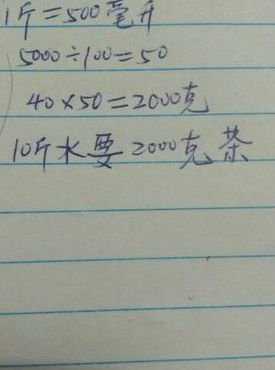 1斤=500毫升
5000÷100=50
40×50=2000克
10斤水要2000克茶